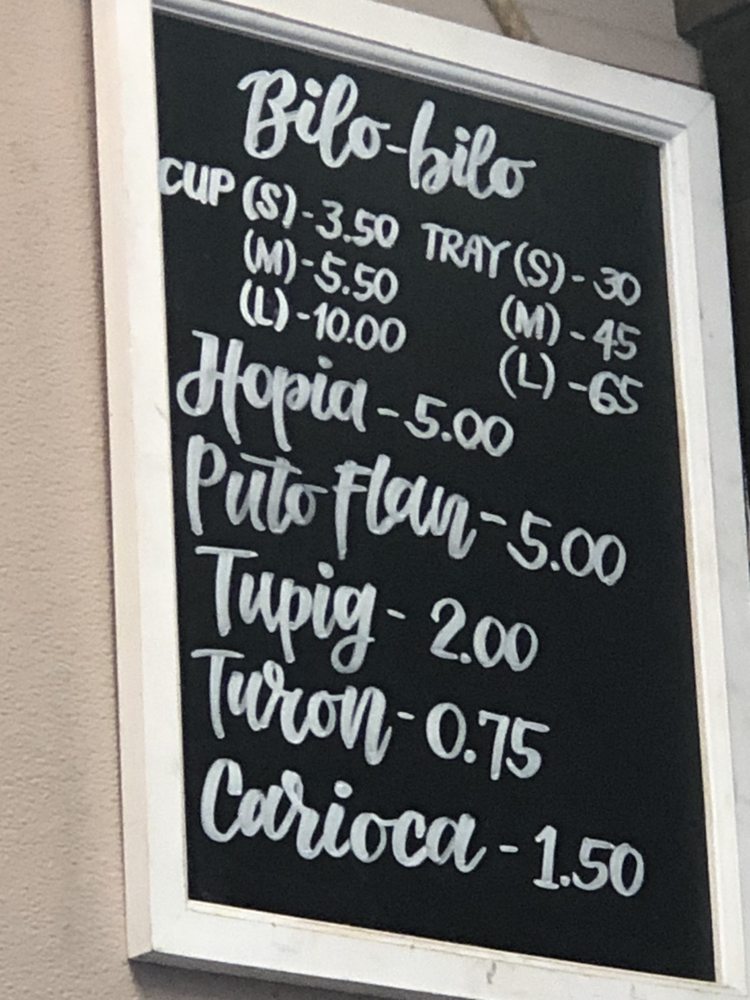 Bilo-bilo
CUP (S) - 3.50 TRAY (S) - 30
(M) - 5.50 (M) - 45
(L) - 10.00 (L) - 65
Hopia - 5.00
Puto Flan - 5.00
Tupig - 2.00
Turon - 0.75
Carioca - 1.50